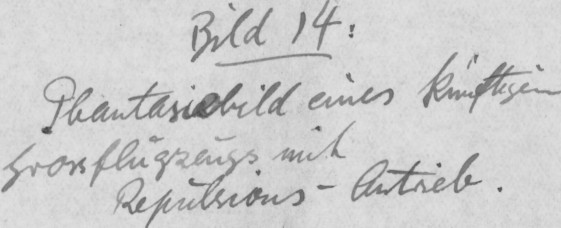 Bild 14:
Phantasiebild eines künftigen
Grossflugzeugs mit
Repulsions-Antrieb.